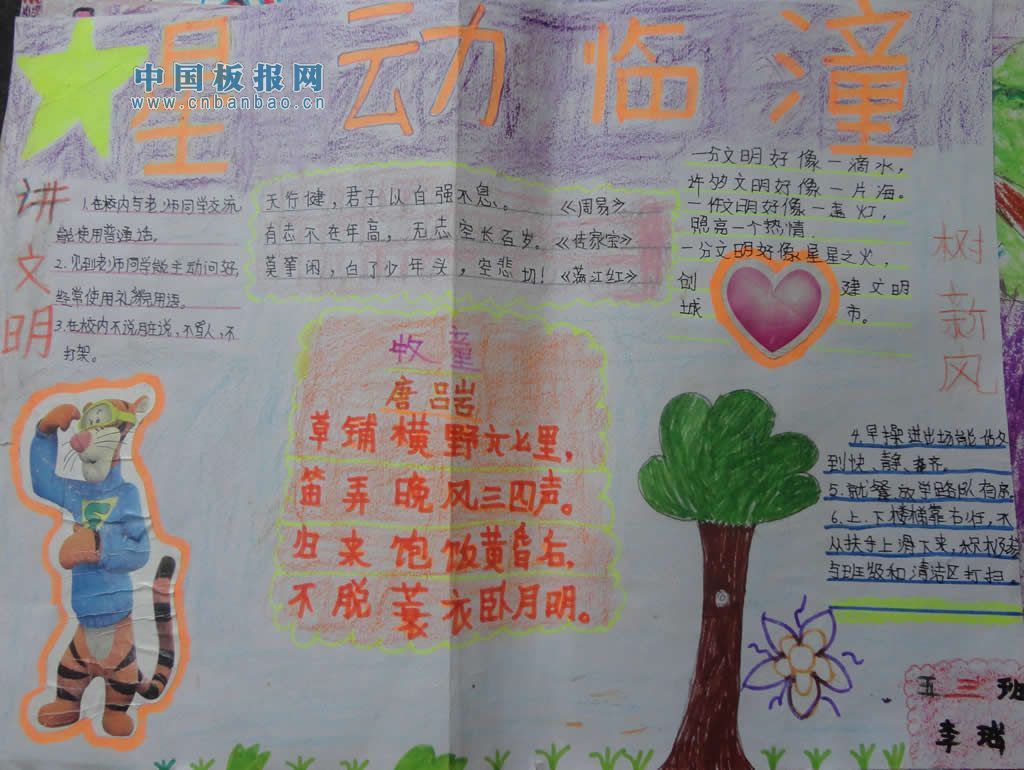 星动临潼
中国板报网
www.cnbanbao.cn
讲文明
1.在校内与老师同学交流,
能使用普通话。
2.见到老师同学能主动问好,
经常使用礼貌用语。
3.在校内不说脏话,不骂人,不
打架。
天行健,君子以自强不息。 《周易》
有志不在年高,无志空长百岁。《传家宝》
莫等闲,白了少年头,空悲切!《满江红》
一分文明好像一滴水,
许多文明好像一片海。
一份文明好像一盏灯,
照亮一个热情.
一分文明好像星星之火,
创建文明
城市。
树新风
牧童
唐 吕岩
草铺横野六七里,
笛弄晚风三四声。
归来饱饭黄昏后,
不脱蓑衣卧月明。
4.早操进出场能做
到快、静、齐。
5.就餐放学路队有序
6.上、下楼梯靠右行,不
从扶手上滑下来,积极参
与班级和清洁区打扫
五三班
李